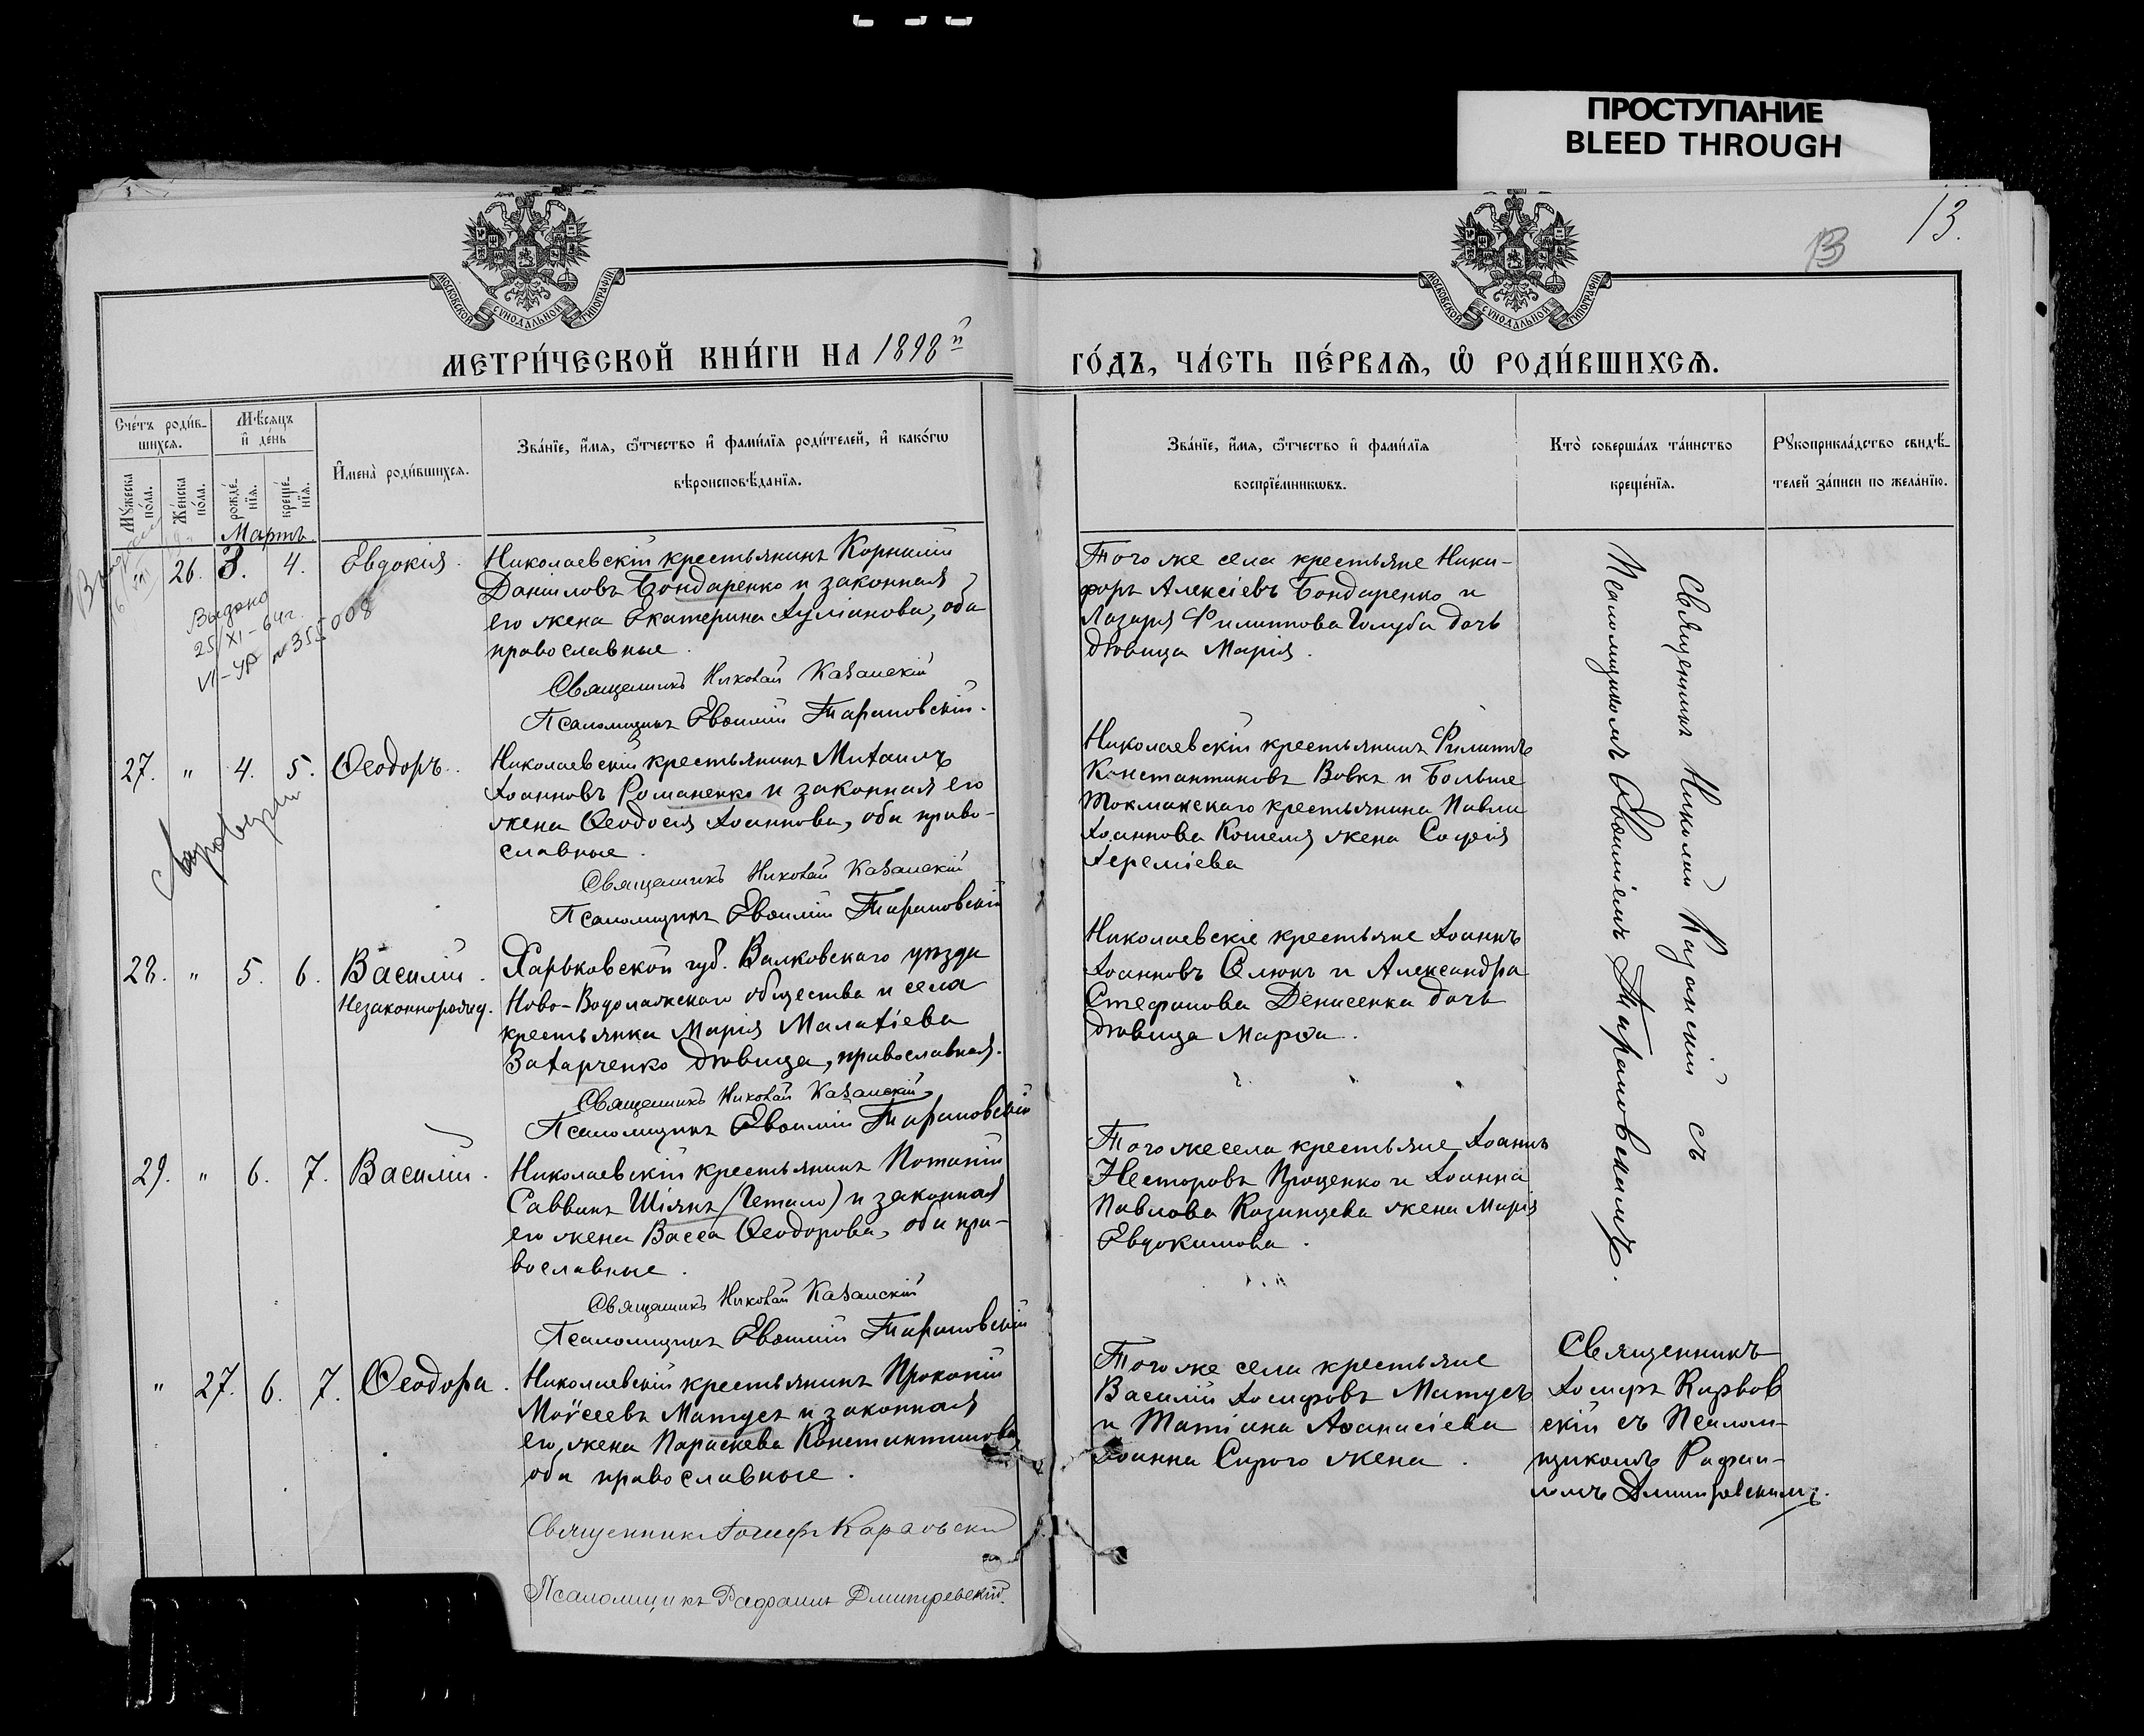 ПРОСТУПАНИЕ
BLEED THROUGH
13.
13
МОСКОВСКОЙ СѴНОДАЛЬНОЙ ТИПОГРАФІИ
МОСКОВСКОЙ СѴНОДАЛЬНОЙ ТИПОГРАФІИ
МЕТРИ́ЧЕСКОЙ КНИ́ГИ НА 1898й
ГО́ДЪ, ЧА́СТЬ ПЕ́РВАѦ, Ѡ҆ РОДИ́ВШИХСѦ.
Сче́тъ роди́в-
шихсѧ.
Мѣ́сѧцъ
и҆ де́нь
И҆мена̀ роди́вшихсѧ.
Зва́нїе, и҆́мѧ, ѻ҆́тчество и҆ фами́лїѧ роди́телей, и҆ како́гѡ
вѣроисповѣ́данїѧ.
Мꙋ́жеска
по́ла.
Же́нска
по́ла.
рожде́-
нїѧ.
креще́-
нїѧ.
Зва́нїе, и҆́мѧ, ѻ҆́тчество и҆ фами́лїѧ
воспрїе́мникѡвъ.
Кто̀ соверша́лъ та́инство
креще́нїѧ.
Рꙋкоприкла́дство свидѣ́-
телей за́писи по жела́нїю.
Мартъ
" 26. 3. 4. Евдокія.
Николаевскій крестьянинъ Корнилій
Даніиловъ Бондаренко и законная
его жена Екатерина Іуліанова, оба
православные.
Священникъ Николай Казанскій
Псаломщикъ Евѳимій Тарановскій.
Того же села крестьяне Ники-
форъ Алексіевъ Бондаренко и
Лазаря Филиппова Голуба дочь
дѣвица Марія.
Выдано
25/XI-64г.
VI-УР № 355008
27. " 4. 5. Ѳеодоръ.
Николаевскій крестьянинъ Михаилъ
Іоанновъ Романенко и законная его
жена Ѳеодосія Іоаннова, оба право-
славные.
Священникъ Николай Казанскій
Псаломщикъ Евѳимій Тарановскій
Николаевскій крестьянинъ Филиппъ
Константиновъ Вовкъ и Больше
Токмакскаго крестьянина Павла
Іоаннова Кошеля жена Софія
Іереміева
28. " 5. 6. Василій.
Незаконнорожд.
Харьковской губ. Валковскаго уѣзда
Ново-Водолажскаго общества и села
крестьянка Марія Малахіева
Захарченко дѣвица, православная.
Священникъ Николай Казанскій
Псаломщикъ Евѳимій Тарановскій
Николаевскіе крестьяне Іоаннъ
Іоанновъ Олюкъ и Александра
Стефанова Денисенка дочь
дѣвица Марѳа.
29. " 6. 7. Василій.
Николаевскій крестьянинъ Потапій
Саввинъ Шіянъ (Гетало) и законная
его жена Васса Ѳеодорова, оба пра-
вославные.
Священникъ Николай Казанскій
Псаломщикъ Евѳимій Тарановскій
Того же села крестьяне Іоаннъ
Несторовъ Проценко и Іоанна
Павлова Казанцева жена Марія
Евдокимова.
Священникъ Николай Казанскій съ
Псаломщикомъ Евѳиміемъ Тарановскимъ.
" 27. 6. 7. Ѳеодора.
Николаевскій крестьянинъ Прокопій
Моѵсеевъ Матусъ и законная
его жена Параскева Константинова
оба православные.
Священникъ Іосифъ Карповскій
Псаломщикъ Рафаилъ Дмитревскій.
Того же села крестьяне
Василій Іосифовъ Матусъ
и Татіана Аѳанасіева
Іоанна Сирого жена.
Священникъ
Іосифъ Карпов
скій съ Псалом-
щикомъ Рафаи-
ломъ Дмитревскимъ.